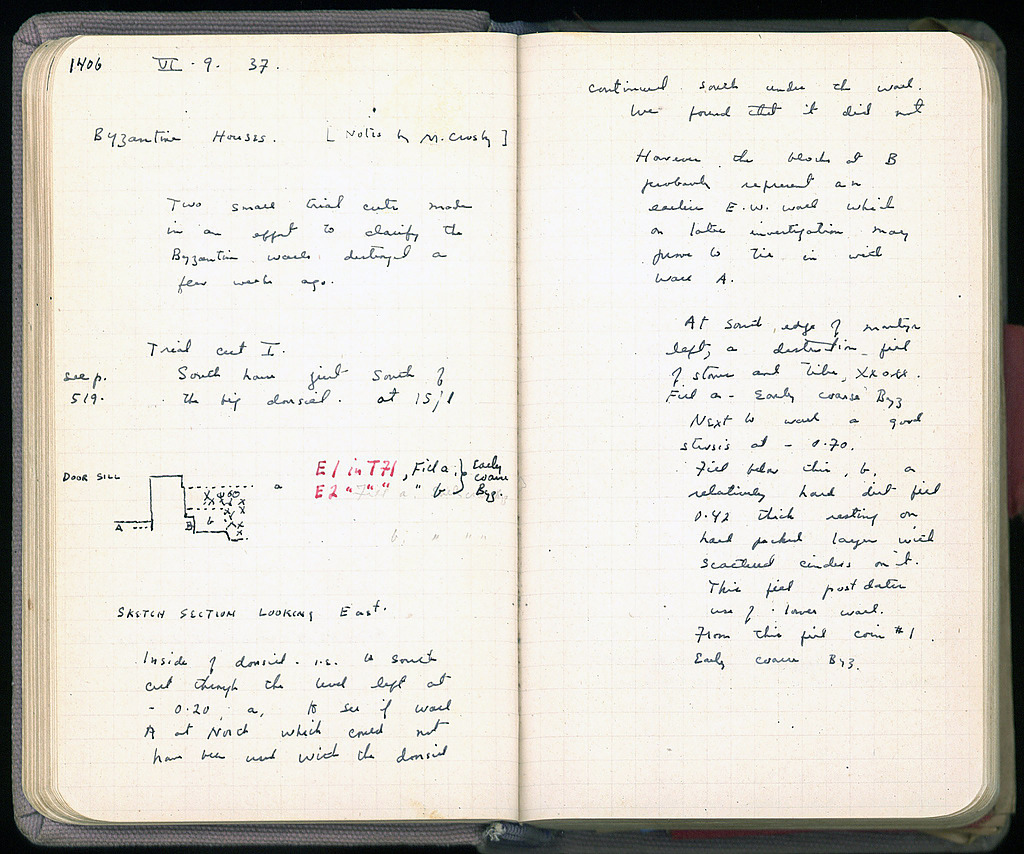 1406 VI · 9 · 37.
Byzantine Houses. [Notes by M. Crosby]
Two small trial cuts made
in an effort to clarify the
Byzantine walls destroyed a
few weeks ago.
Trial cut I.
see p. South
519. the big doorsill. at 15/1
DOOR SILL
a
E1 in T71, Fill a. } Early
E2 " " " , " b } coarse
Byz.
b, " " "
A
B
b
SKETCH SECTION LOOKING East.
Inside of doorsill. i.e. to south
cut through the level left at
- 0.20, a, to see if wall
A at North which could not
have been used with the doorsill
continued south under the wall.
We found that it did not
However the blocks at B
probably represent an
earlier E.W. wall which
on later investigation may
prove to tie in with
wall A.
At south edge of
left, a destruction fill
of stone and tile, XXoXX.
Fill a - Early coarse Byz
Next to wall a good
stosis at - 0.70.
Fill below this, b, a
relatively hard dirt fill
0.42 thick resting on
hard packed layer with
scattered cinders on it.
This fill post dates
use of lower wall.
From this fill coin #1.
Early coarse Byz.